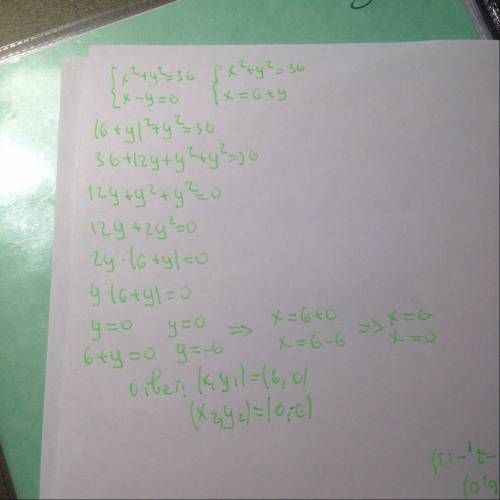 {x²+y²=36 {x²+y²=36
{x-y=0 {x=6+y
(6+y)²+y²=36
36+12y+y²+y²=36
12y+y²+y²=0
12y+2y²=0
2y·(6+y)=0
y·(6+y)=0
y=0 y=0 => x=6+0 => x=6
6+y=0 y=-6 x=6-6 x=0
ответ: (x,y₁)=(6,0)
(x₂,y₂)=(0,-6)